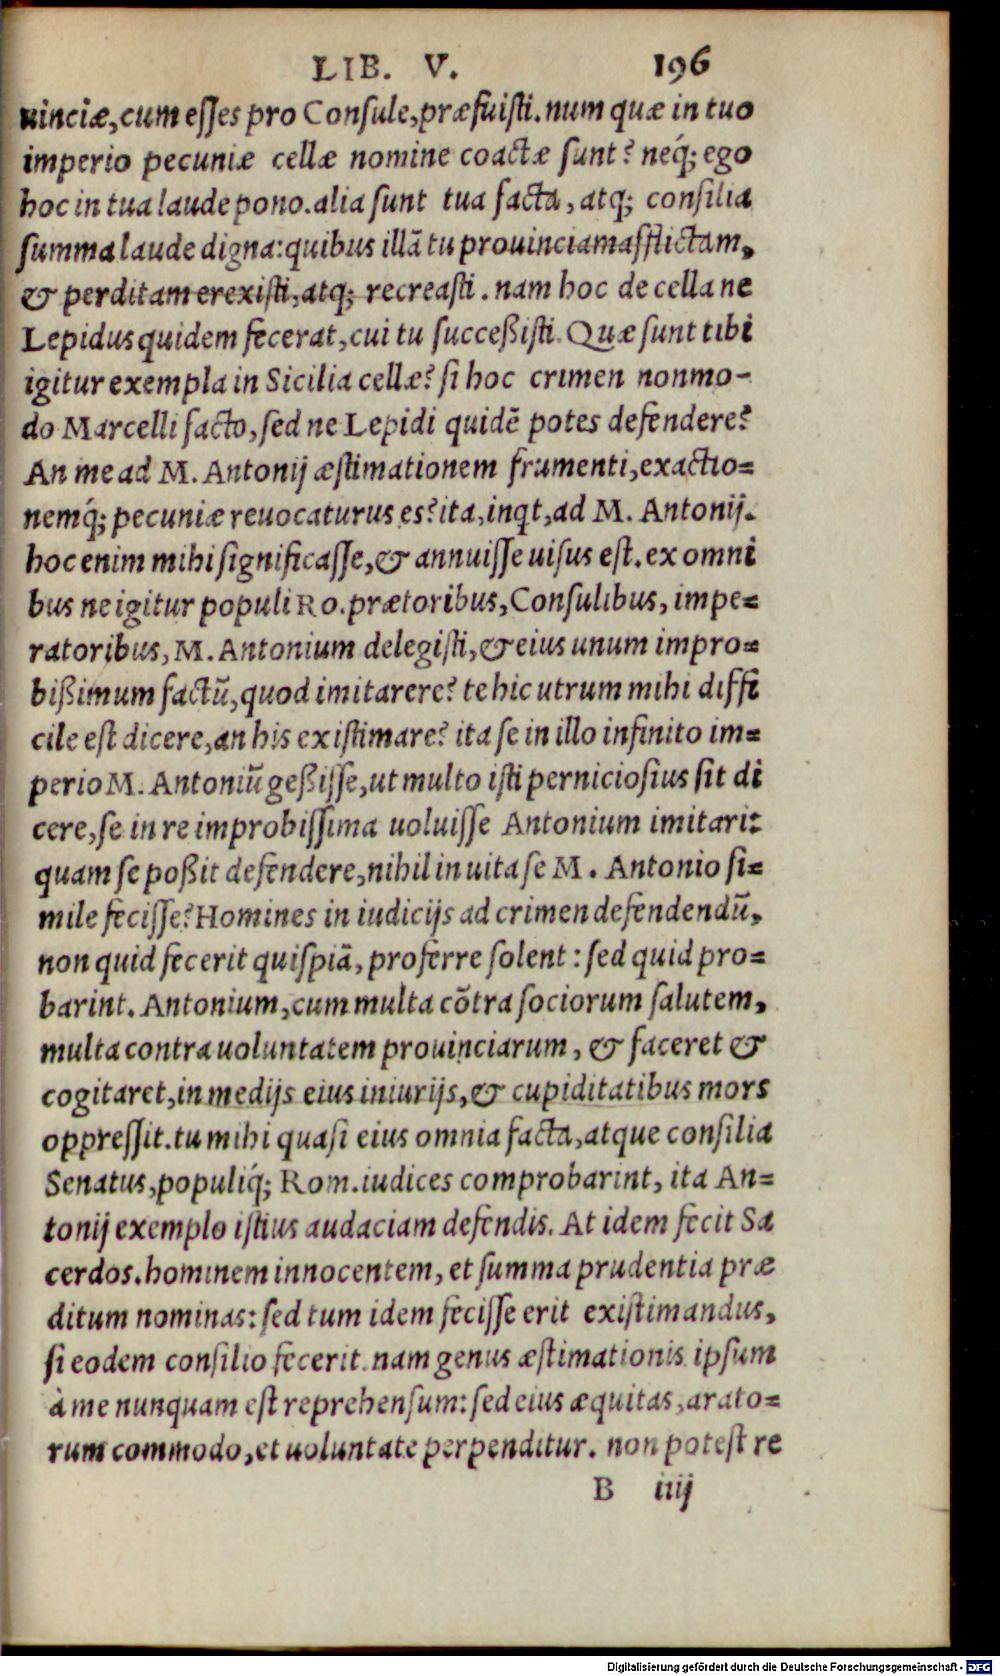 LIB. V. 196
uinciæ, cum eſſes pro Conſule, præfuiſti. num quæ in tuo
imperio pecuniæ cellæ nomine coactæ ſunt? neq́; ego
hoc in tua laude pono. alia ſunt tua facta, atq; conſilia
ſumma laude digna: quibus illã tu prouinciam afflictam,
& perditam erexiſti, atq; recreaſti. nam hoc de cella ne
Lepidus quidem fecerat, cui tu ſucceßiſti. Quæ ſunt tibi
igitur exempla in Sicilia cellæ? ſi hoc crimen nonmo-
do Marcelli facto, ſed ne Lepidi quidẽ potes defendere?
An me ad M. Antonij æſtimationem frumenti, exactio=
nemq́; pecuniæ reuocaturus es? ita, inqt, ad M. Antonij.
hoc enim mihi ſignificaſſe, & annuiſſe uiſus eſt. ex omni
bus ne igitur populi Ro. prætoribus, Conſulibus, impe=
ratoribus, M. Antonium delegiſti, & eius unum impro=
bißimum factũ, quod imitarere? te hic utrum mihi diffi
cile eſt dicere, an his exiſtimare? ita ſe in illo infinito im=
perio M. Antoniũ geßiſſe, ut multo iſti pernicioſius ſit di
cere, ſe in re improbiſſima uoluiſſe Antonium imitari:
quam ſe poßit defendere, nihil in uita ſe M. Antonio ſi=
mile feciſſe? Homines in iudicijs ad crimen defendendũ,
non quid fecerit quiſpiã, proferre ſolent: ſed quid pro=
barint. Antonium, cum multa cõtra ſociorum ſalutem,
multa contra uoluntatem prouinciarum, & faceret &
cogitaret, in medijs eius iniurijs, & cupiditatibus mors
oppreſſit. tu mihi quaſi eius omnia facta, atque conſilia
Senatus, populiq́; Rom. iudices comprobarint, ita An=
tonij exemplo iſtius audaciam defendis. At idem fecit Sa
cerdos. hominem innocentem, et ſumma prudentia præ
ditum nominas: ſed tum idem feciſſe erit exiſtimandus,
ſi eodem conſilio fecerit. nam genus æſtimationis ipſum
à me nunquam eſt reprehenſum: ſed eius æquitas, arato=
rum commodo, et uoluntate perpenditur. non poteſt re
B iiij
Digitalisierung gefördert durch die Deutsche Forschungsgemeinschaft - DFG